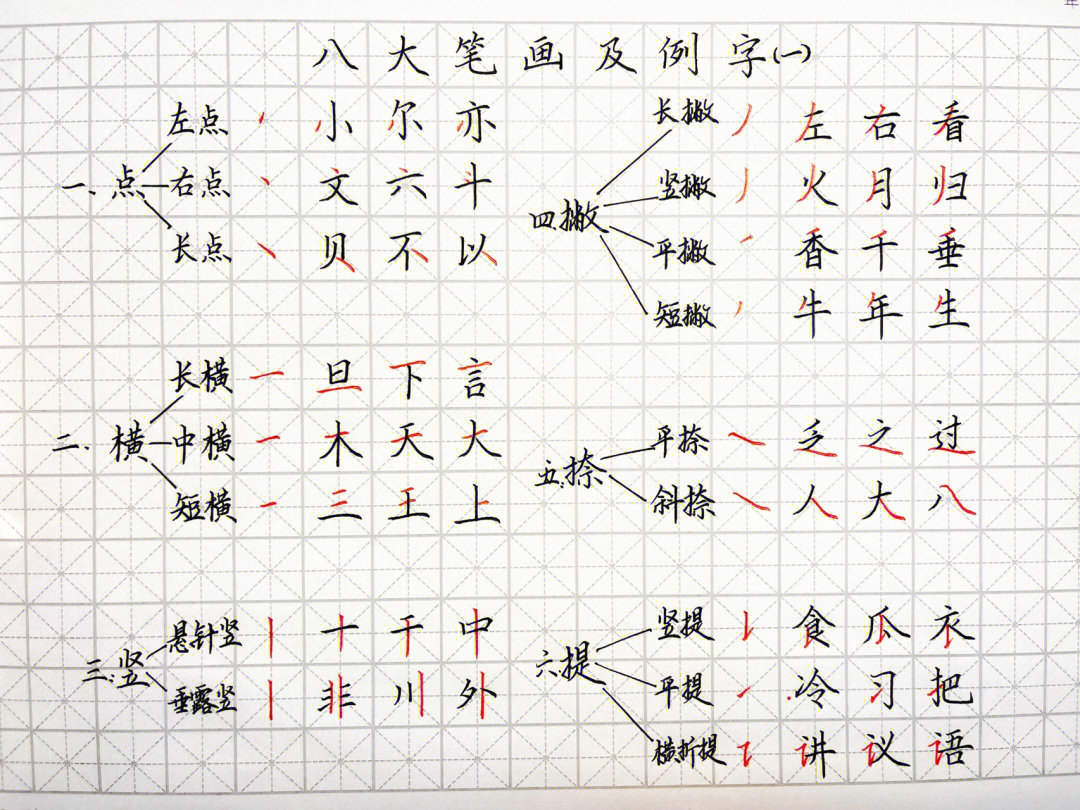 年
八大笔画及例字(一)
一、点
左点 小 尔 亦
右点 文 六 斗
长点 贝 不 以
二、横
长横 旦 下 言
中横 木 天 大
短横 三 王 上
三、竖
悬针竖 十 干 中
垂露竖 非 川 外
四、撇
长撇 左 右 看
竖撇 火 月 归
平撇 香 千 垂
短撇 牛 年 生
五、捺
平捺 乏 之 过
斜捺 人 大 八
六、提
竖提 食 瓜 衣
平提 冷 习 把
横折提 讲 议 语